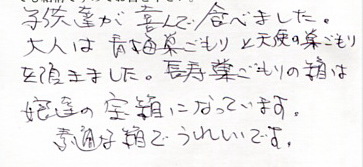 子供達が喜んで食べました。
大人は青梅巣ごもりと天使の巣ごもり
を頂きました。長寿巣ごもりの箱は
娘達の宝箱になっています。
素適な箱でうれしいです。